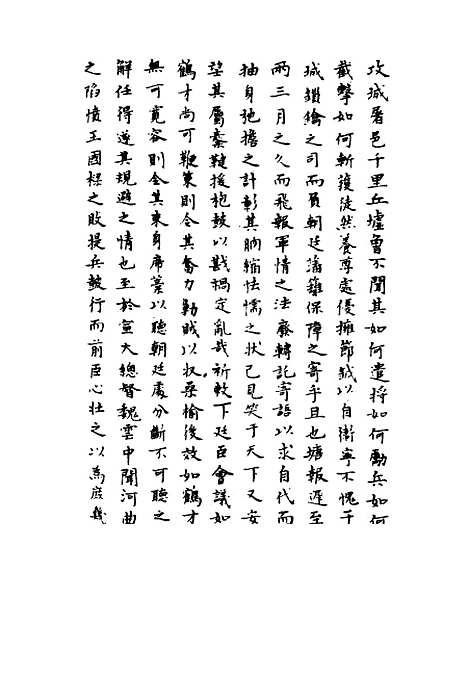 攻城屠邑千里丘墟曾不聞其如何遣將如何勵兵如何
截擊如何斬獲徒然養尊處優擁節鉞以自衛寧不愧于
城鎖鑰之司而負朝廷藩籬保障之寄乎且也塘報遲至
兩三月之久而飛報軍情之法廢轉託寄語以求自代而
抽身弛擔之計彰其朒縮怯懦之狀已見笑于天下又安
望其屬櫜鞬援枹鼓以戡禍定亂哉祈敕下廷臣會議如
鶴才尚可鞭策則令其奮力勦賊以收桑榆後效如鶴才
無可寬容則令其束身席藁以聽朝廷處分斷不可聽之
解任得遂其規避之情也至於宣大總督魏雲中聞河曲
之陷憤王國樑之敗提兵鼓行而前臣心壯之以為庶幾